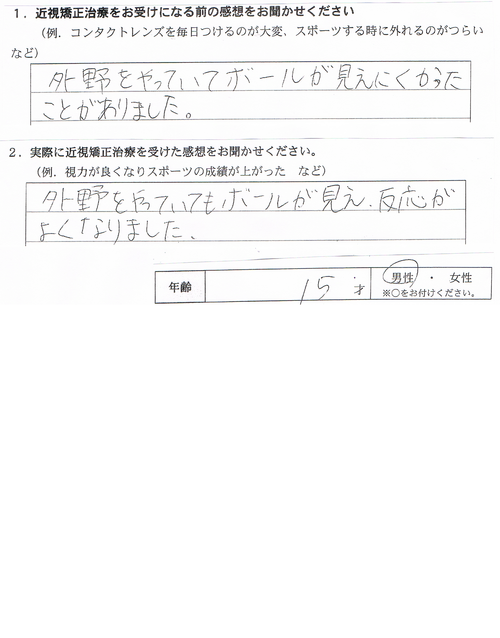 １．近視矯正治療をお受けになる前の感想をお聞かせください
（例．コンタクトレンズを毎日つけるのが大変、スポーツする時に外れるのがつらい
など）
外野をやっていてボールが見えにくかった
ことがありました。
２．実際に近視矯正治療を受けた感想をお聞かせください。
（例．視力が良くなりスポーツの成績が上がった　など）
外野をやっていてもボールが見え、反応が
よくなりました、
年齢 15才 男性 ・ 女性
※○をお付けください。